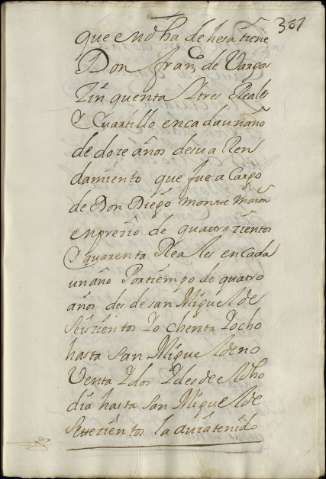 301
que en dha dehesa tiene
Don Franco de Vargas
Zinquenta Ytres Reales
Y Quartillo encadaunaño
de doze años desu a Ren
damiento que fue a Cargo
de Don Diego Monrroi
enprezio de quatrozientos
Y quarenta Reales encada
unaño Portiempo de quatro
años desde san Miguel de
Seiszientos Y ochenta Yocho
hasta san Miguel de no
Venta Ydos Y desde dicho
dia hasta San Miguel de
Settezientos la aVia tenido